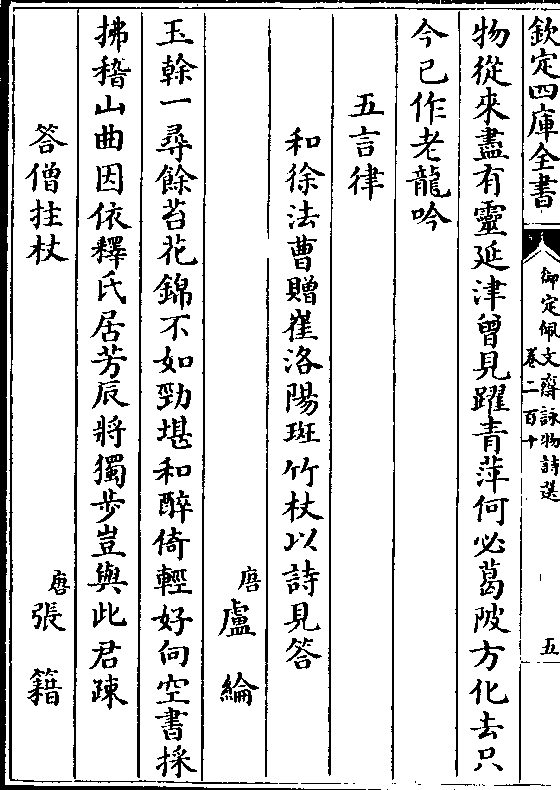 欽定四庫全書
御定佩文齋詠物詩選
卷二百十
五
物從來盡有靈延津曾見躍青萍何必葛陂方化去只
今已作老龍吟
五言律
和徐法曹贈崔洛陽斑竹杖以詩見答
唐盧綸
玉榦一尋餘苔花錦不如勁堪和醉倚輕好向空書採
拂稽山曲因依釋氏居芳辰將獨步豈與此君踈
答僧拄杖
唐張籍